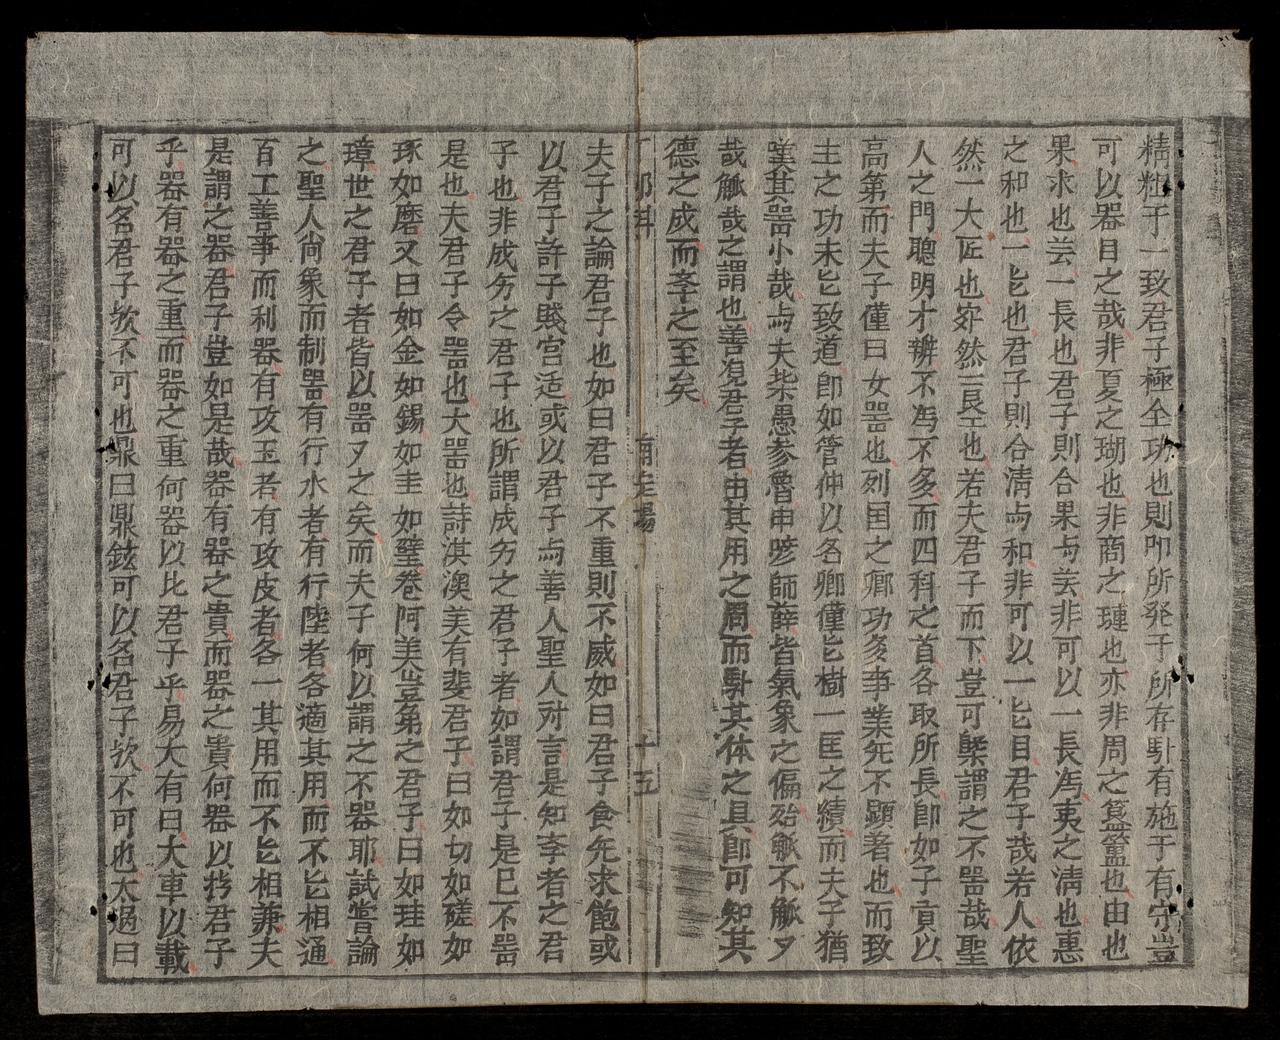 精粗于一致君子極全功也則即所発于所存馯有施于有守豈
可以器目之哉非夏之瑚也非商之璉也亦非周之簋簠也由也
果求也芸一長也君子則合果与芸非可以一長焉夷之清也惠
之和也一𠤎也君子則合清与和非可以一𠤎目君子哉若人依
然一大匠也宛然一良工也若夫君子而下豈可槩謂之不噐哉聖
人之門聰明才辨不為不多而四科之首各取所長即如子貢以
高第而夫子僅曰女噐也列国之卿功多事業兂不顯著也而致
主之功未𠤎致道即如管仲以名卿僅𠤎樹一匡之績而夫子猶
嘆其噐小哉与夫柴愚参魯由喭師薛皆氣象之偏殆觚不觚
哉觚哉之謂也善覌君子者由其用之周而馯其体之具即可知其
德之成而斈之至矣
丁卯科
南定場
十五
夫子之論君子也如曰君子不重則不威如曰君子食兂求飽或
以君子許子賤宮适或以君子与善人聖人対言是知斈者之君
子也非成名之君子也所謂成名之君子者如謂君子是已不噐
是也夫君子令噐也大噐也詩淇澳美有斐君子曰如切如磋如
琢如磨又曰如金如錫如圭如璧卷阿美豈弟之君子曰如珪如
璋世之君子者皆以噐之矣而夫子何以謂之不器耶試嘗論
之聖人尚象而制噐有行水者有行陸者各適其用而不𠤎相通
百工善事而利器有攻玉者有攻皮者各一其用而不𠤎相兼夫
是謂之器君子豈如是哉器有器之貴而器之貴何器以拟君子
乎器有器之重而器之重何器以比君子乎易大有曰大車以載
可以名君子欤不可也鼎曰鼎鉉可以名君子欤不可也太過曰